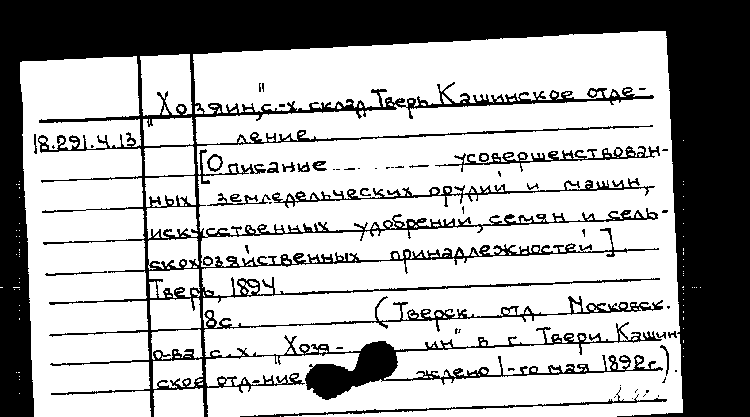 „Хозяин", с.-х. склад. Тверь. Кашинское отде-
18.291.4.13 ление.
[Описание ... ... усовершенствован-
ных земледельческих орудий и машин,
искусственных удобрений, семян и сель-
скохозяйственных принадлежностей].
Тверь, 1894.
8с. (Тверск. отд. Московск.
о-ва с.х. „Хозя- ин" в г. Твери. Кашин-
ское отд-ние ждено 1-го мая 1892г.).